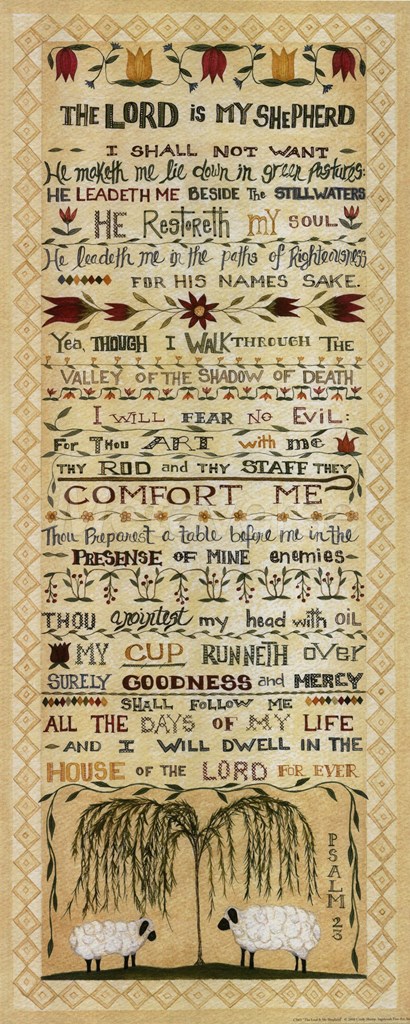 THE LORD is MY SHEPHERD
I SHALL NOT WANT
He maketh me lie down in green pastures:
HE LEADETH ME BESIDE The STILLWATERS
HE Restoreth my SOUL
He leadeth me in the paths of Righteousness
FOR HIS NAMES SAKE.
Yea, THOUGH I WALK THROUGH THE
VALLEY OF THE SHADOW OF DEATH
I WILL FEAR NO EVIL:
FOR THOU ART with me
THY ROD and THY STAFF THEY
COMFORT ME
Thou Preparest a table before me in the
PRESENSE OF MINE enemies
THOU anointest my head with OIL
MY CUP RUNNETH OVER
SURELY GOODNESS and MERCY
SHALL FOLLOW ME
ALL THE DAYS OF MY LIFE
AND I WILL DWELL IN THE
HOUSE OF THE LORD FOR EVER
PSALM 23